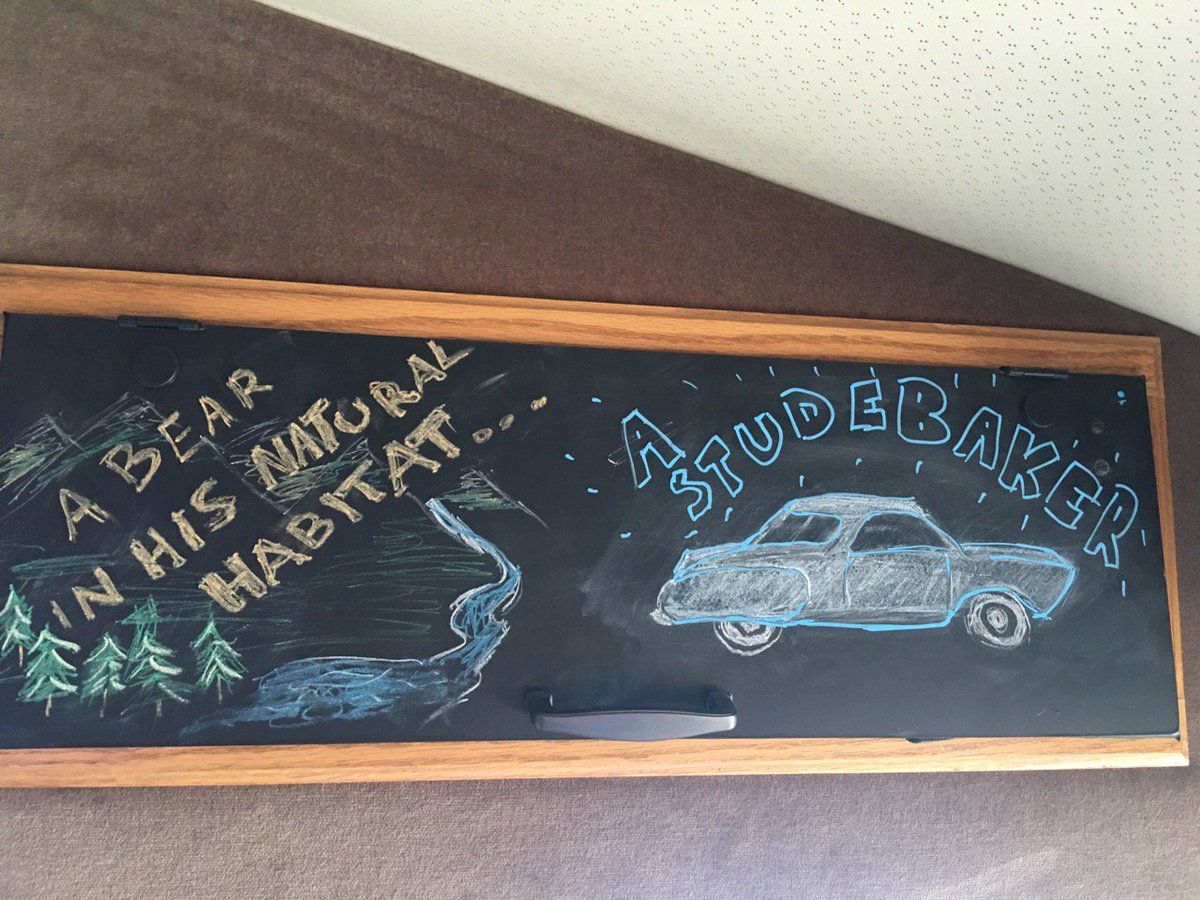 A BEAR
IN HIS NATURAL
HABITAT...
A
STUDEBAKER